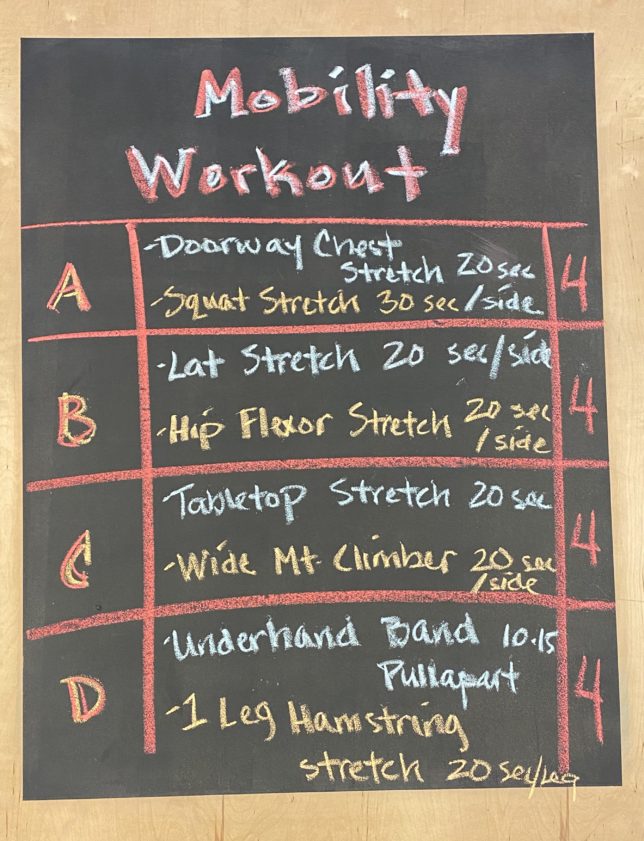 Mobility
Workout
A
-Doorway Chest
Stretch 20 sec
-Squat Stretch 30 sec/side
4
B
-Lat Stretch 20 sec/side
-Hip Flexor Stretch 20 sec
/side
4
C
-Tabletop Stretch 20 sec
-Wide Mt. Climber 20 sec
/side
4
D
-Underhand Band 10-15
Pullapart
-1 Leg Hamstring
stretch 20 sec/leg
4